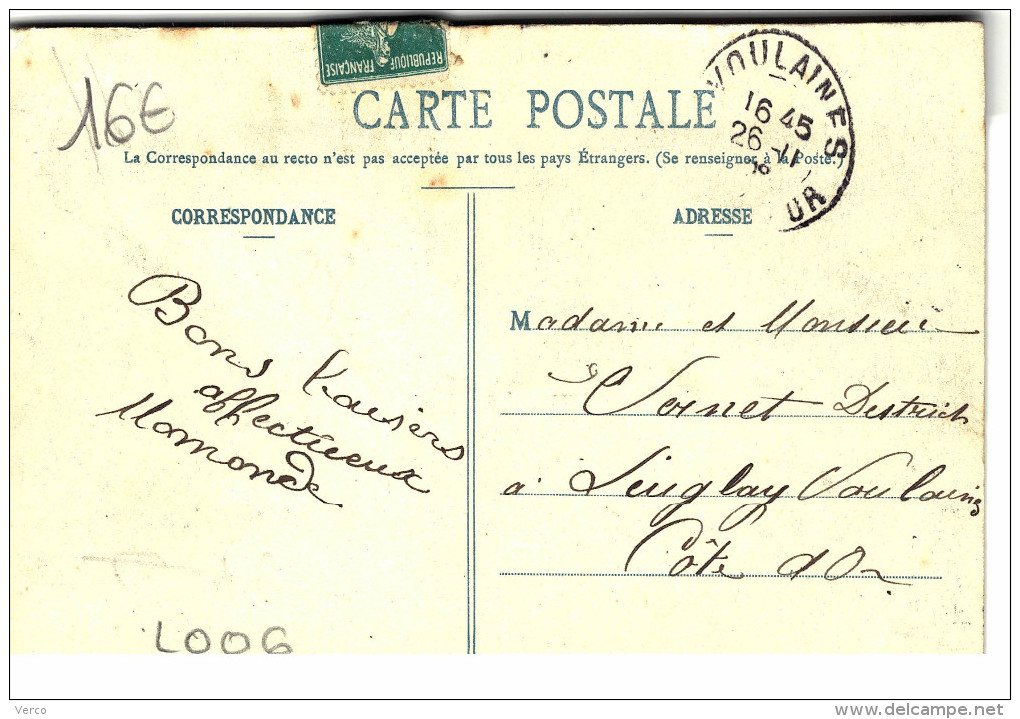 REPUBLIQUE FRANÇAISE
16€
CARTE POSTALE
VOULAINES
16 45
26 -11
OR
La Correspondance au recto n'est pas acceptée par tous les pays Étrangers. (Se renseigner à la Poste.)
CORRESPONDANCE
ADRESSE
Bons baisers
affectueux
Madame et Monsieur
Vernet District
à Leuglay Voulaines
Côte d'Or
L006
Verco
delcampe.net